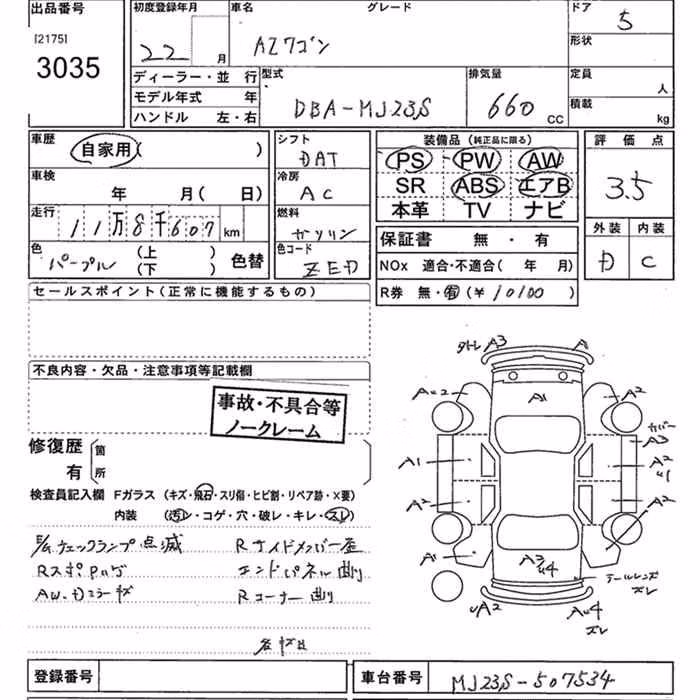 出品番号 初度登録年月 車名 グレード ドア
[2175] 22 月 AZワゴン 5
3035 形状
ディーラー・並 行 型式 排気量 定員 人
モデル年式 年 DBA-MJ23S 660 CC 積載 kg
ハンドル 左・右
車歴 自家用( ) シフト DAT 装備品 (純正品に限る) 評価点
車検 年 月( 日) 冷房 AC PS PW AW 3.5
走行 11万8千607 km 燃料 ガソリン SR ABS エアB
本革 TV ナビ 外装 内装
色 パープル (上) (下) 色替 色コード ZED 保証書 無・有 D C
NOx 適合・不適合( 年 月)
R券 無・有(¥10100)
セールスポイント(正常に機能するもの)
不良内容・欠品・注意事項等記載欄
事故・不具合等
ノークレーム
修復歴 有 箇所
検査員記入欄 Fガラス (キズ・飛石・スリ傷・ヒビ割・リペア跡・×要)
内装 (汚レ・コゲ・穴・破レ・キレ・スレ)
E/gチェックランプ点滅 Rサイドメンバー歪
エンドパネル曲り
AW・Dミラーキズ Rコーナー曲り
各キズ凹
A3 A1
A1
A2 A2
カバー
A3
A1 A2
A2 A2
A1 A3 U4
テールレンズ
ズレ
UA2 AU4
ズレ
登録番号 車台番号 MJ23S-507534